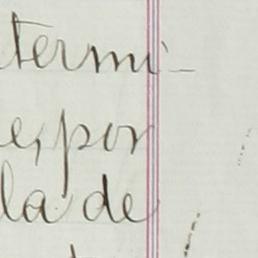 termi-
e, por
la de